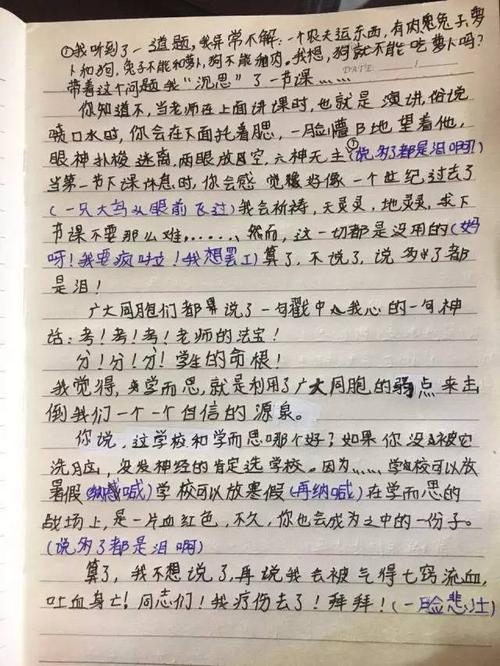 ①我听到了一道题，我异常不解：一个农夫运东西，有肉兔子萝
卜和狗，兔子不能和萝卜，狗不能和肉。我想，狗就不能吃萝卜吗？
DATE
带着这个问题我“沉思”了一节课……
你知道不，当老师在上面讲课时，也就是演讲，俗说
喷口水时，你会在下面托着腮，一脸懵B地望着他，
眼神扑梭迷离，两眼放空，六神无主①(说多了都是泪啊)
当第一节下课休息时，你会感觉好像一个世纪过去了
(一只大鸟从眼前飞过)我会祈祷，天灵灵，地灵灵，求下
节课不要那么难，……，然而，这一切都是没用的(妈
呀！我要疯啦！我想罢工)算了，不说了，说多了都
是泪！
广大同胞们都说了一句戳中我心的一句神
话：考！考！考！老师的法宝！
分！分！分！学生的命根！
我觉得，学而思，就是利用了广大同胞的弱点来击
倒我们一个一个自信的源泉。
你说，这学校和学而思哪个好？如果你没被它
洗脑，没发神经的肯定选学校。因为……学校可以放
暑假(呐喊)学校可以放寒假(再纳喊)在学而思的
战场上，是一片血红色，不久，你也会成为之中的一份子。
(说多了都是泪啊)
算了，我不想说了，再说我会被气得七窍流血，
吐血身亡！同志们！我疗伤去了！拜拜！(一脸悲壮)